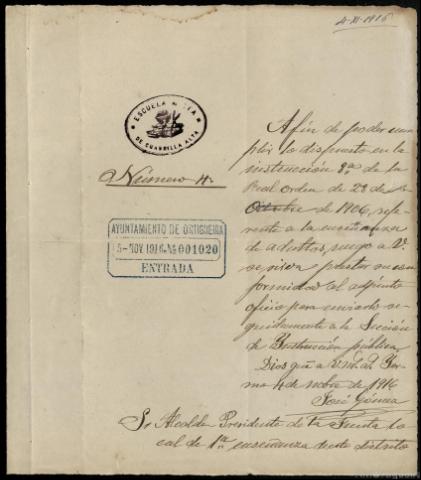 4-XI-1916
ESCUELA
DE CUADRILLA ALTA
Número 4.
AYUNTAMIENTO DE ORTIGUEIRA
5-NOV. 1916 Nº 001020
ENTRADA
A fin de poder cum
plir lo dispuesto en la
instrucción 9ª de la
Real orden de 22 de
Octubre de 1906, refe
rente a la enseñanza
de adultos, ruego a V.
se sirva prestar su con
formidad al adjunto
oficio para enviarlo se
guidamente a la Sección
de Instrucción pública
Dios gue a V. m. a.
4 de nvbre de 1916
José Gómez
Sr Alcalde Presidente de la Junta lo
cal de 1ª enseñanza de este distrito